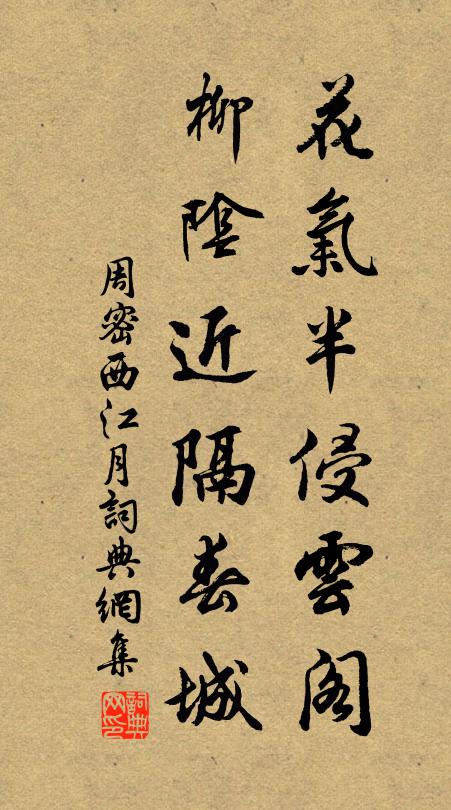 花氣半侵雲閣
柳陰近隔春城
周密西江月詞典網集
詞典网印